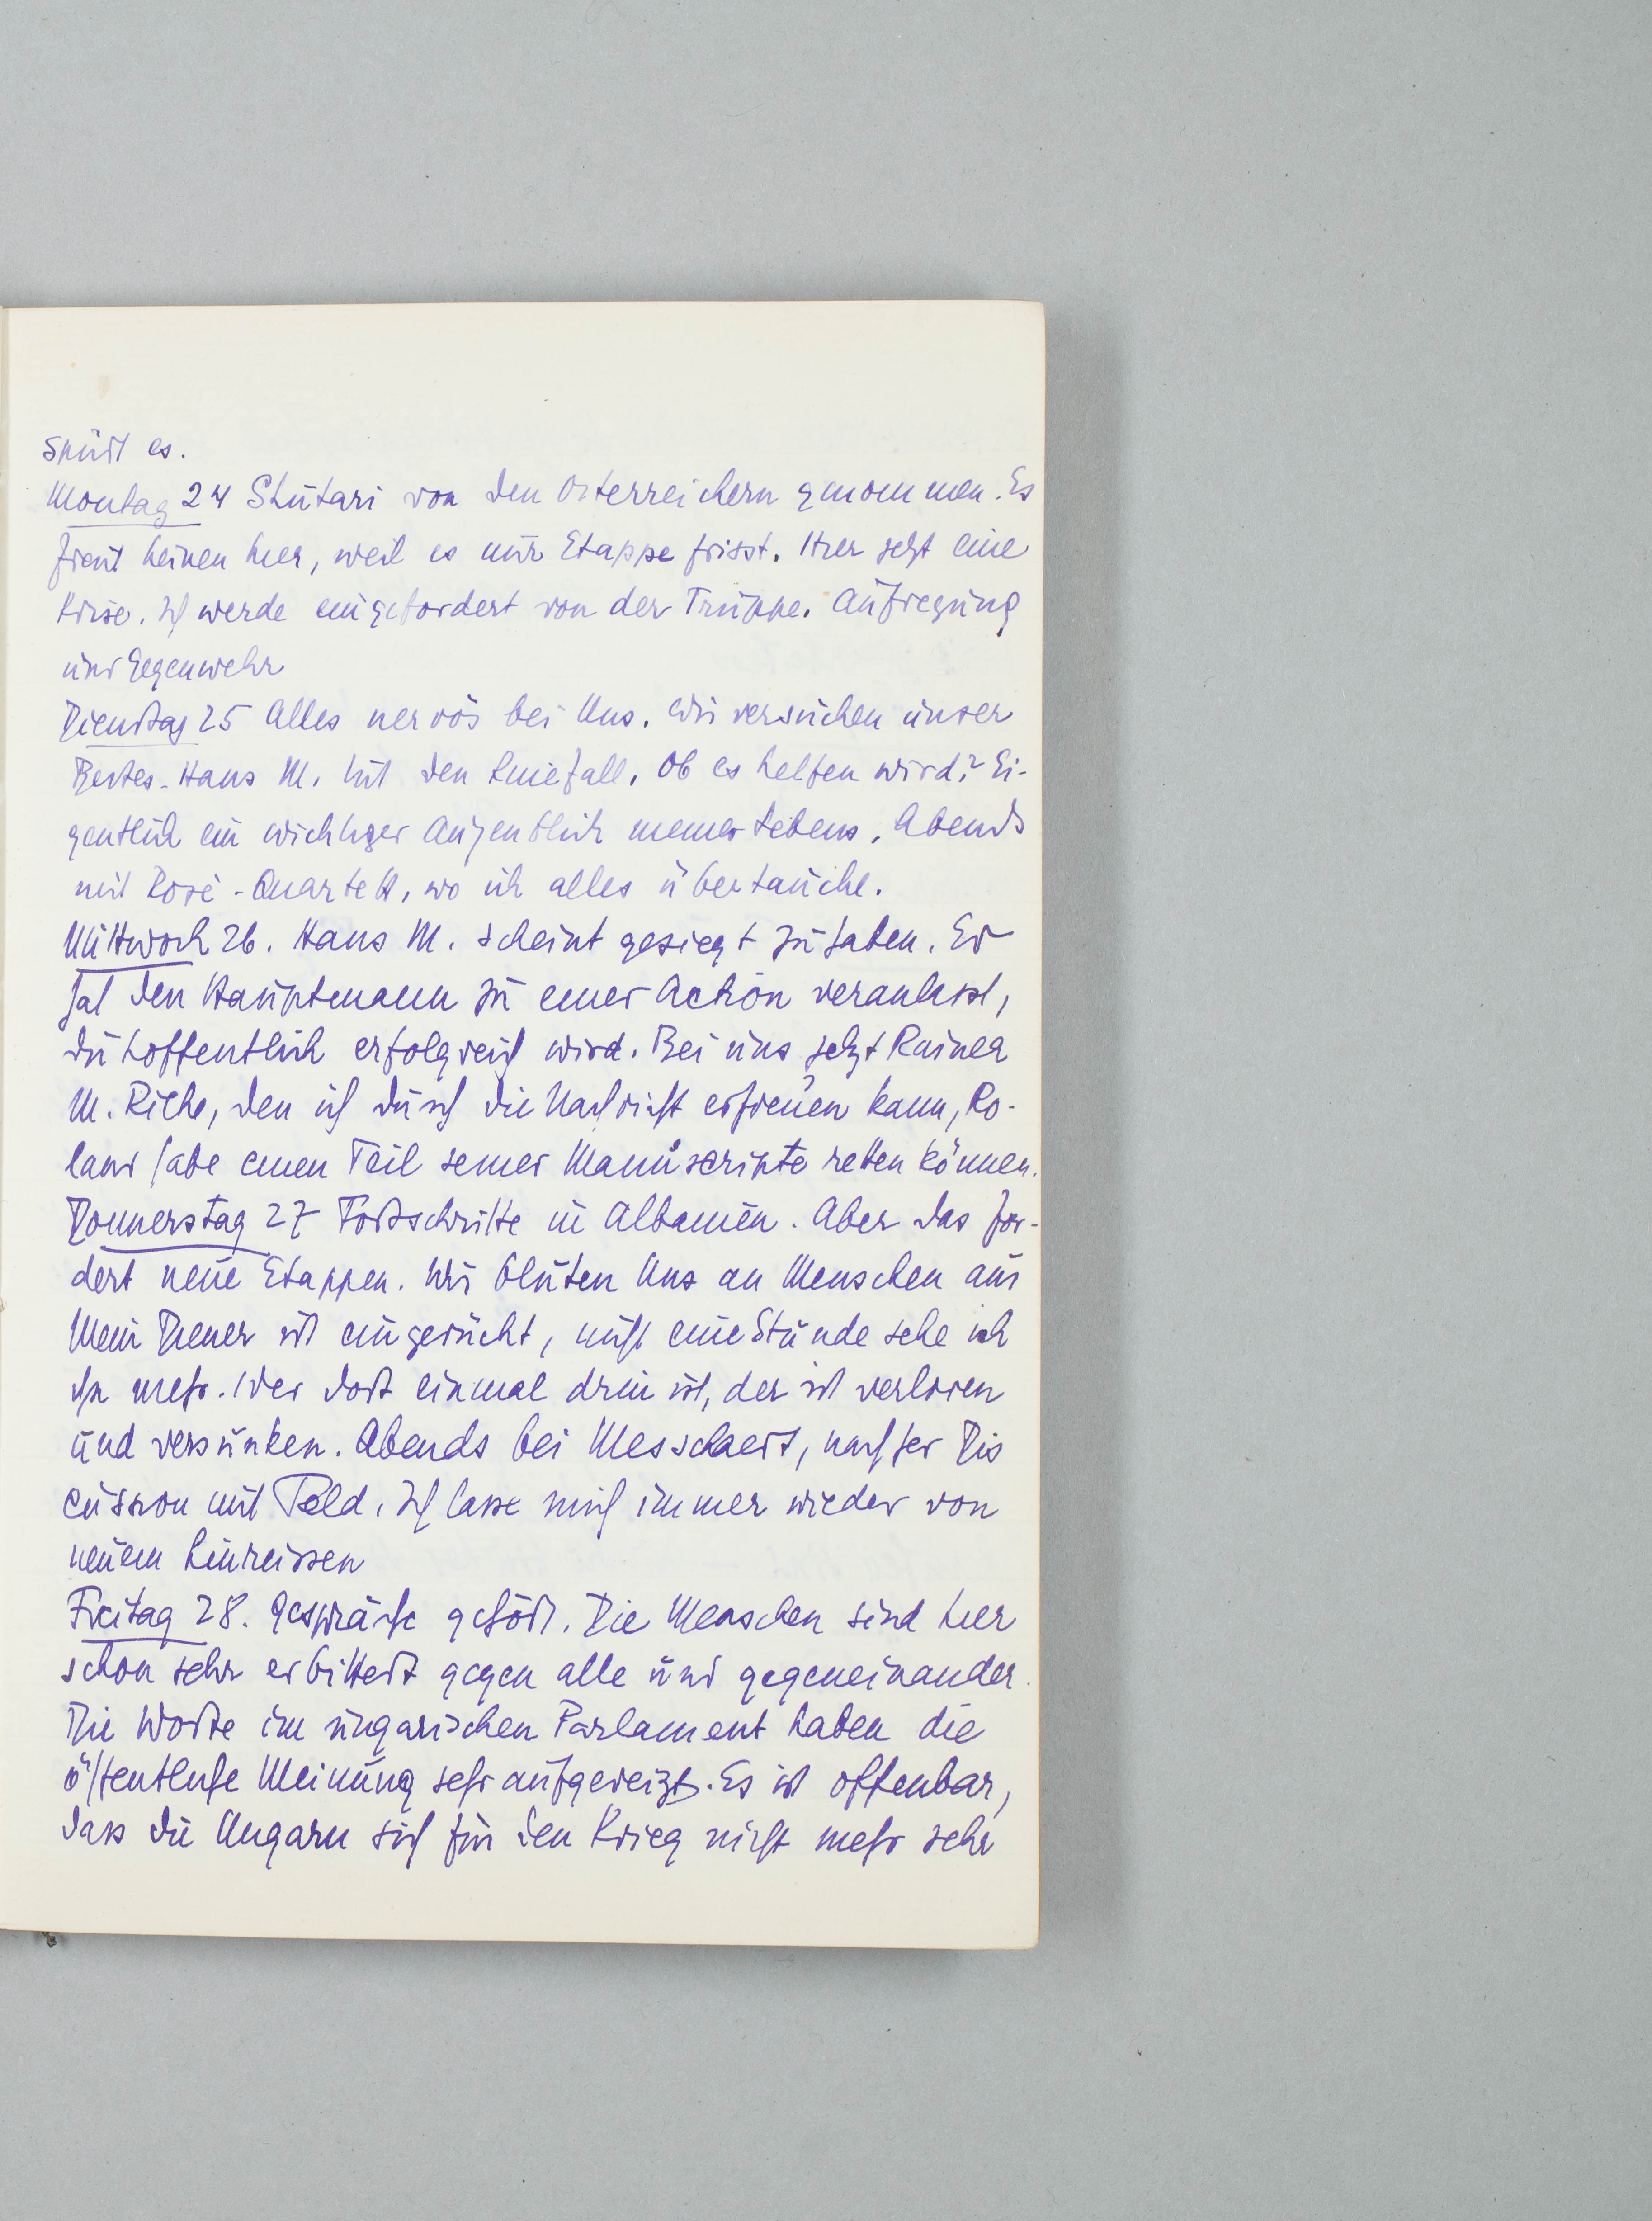 spürt es.
Montag 24 Skutari von den Österreichern genommen. Es
freut keinen hier, weil es nur Etappe frisst. Hier jetzt eine
Krise. Ich werde eingefordert von der Truppe. Aufregung
und Gegenwehr
Dienstag 25 Alles nervös bei Uns. Wir versuchen unser
Bestes. Hans M. tut den Kniefall. Ob es helfen wird? Ei-
gentlich ein wichtiger Augenblick meines Lebens. Abends
mit Rosé-Quartett, wo ich alles übertauche.
Mittwoch 26. Hans M. scheint gesiegt zu haben. Er
hat den Hauptmann zu einer Action veranlasst,
die hoffentlich erfolgreich wird. Bei uns jetzt Rainer
M. Rilke, den ich durch die Nachricht erfreuen kann, Ro-
land habe einen Teil seiner Manuscripte retten können.
Donnerstag 27 Fortschritte in Albanien. Aber das for-
dert neue Etappen. Wir bluten Uns an Menschen aus
Mein Diener ist eingerückt, nicht eine Stunde sehe ich
ihn mehr. Wer dort einmal drin ist, der ist verloren
und versunken. Abends bei Messchaert, nachher Dis
cussion mit Feld. Ich lasse mich immer wieder von
neuem hinreissen
Freitag 28. Gespräche gehört. Die Menschen sind hier
schon sehr erbittert gegen alle und gegeneinander.
Die Worte im ungarischen Parlament haben die
öffentliche Meinung sehr aufgereizt. Es ist offenbar,
dass die Ungarn sich für den Krieg nicht mehr sehr